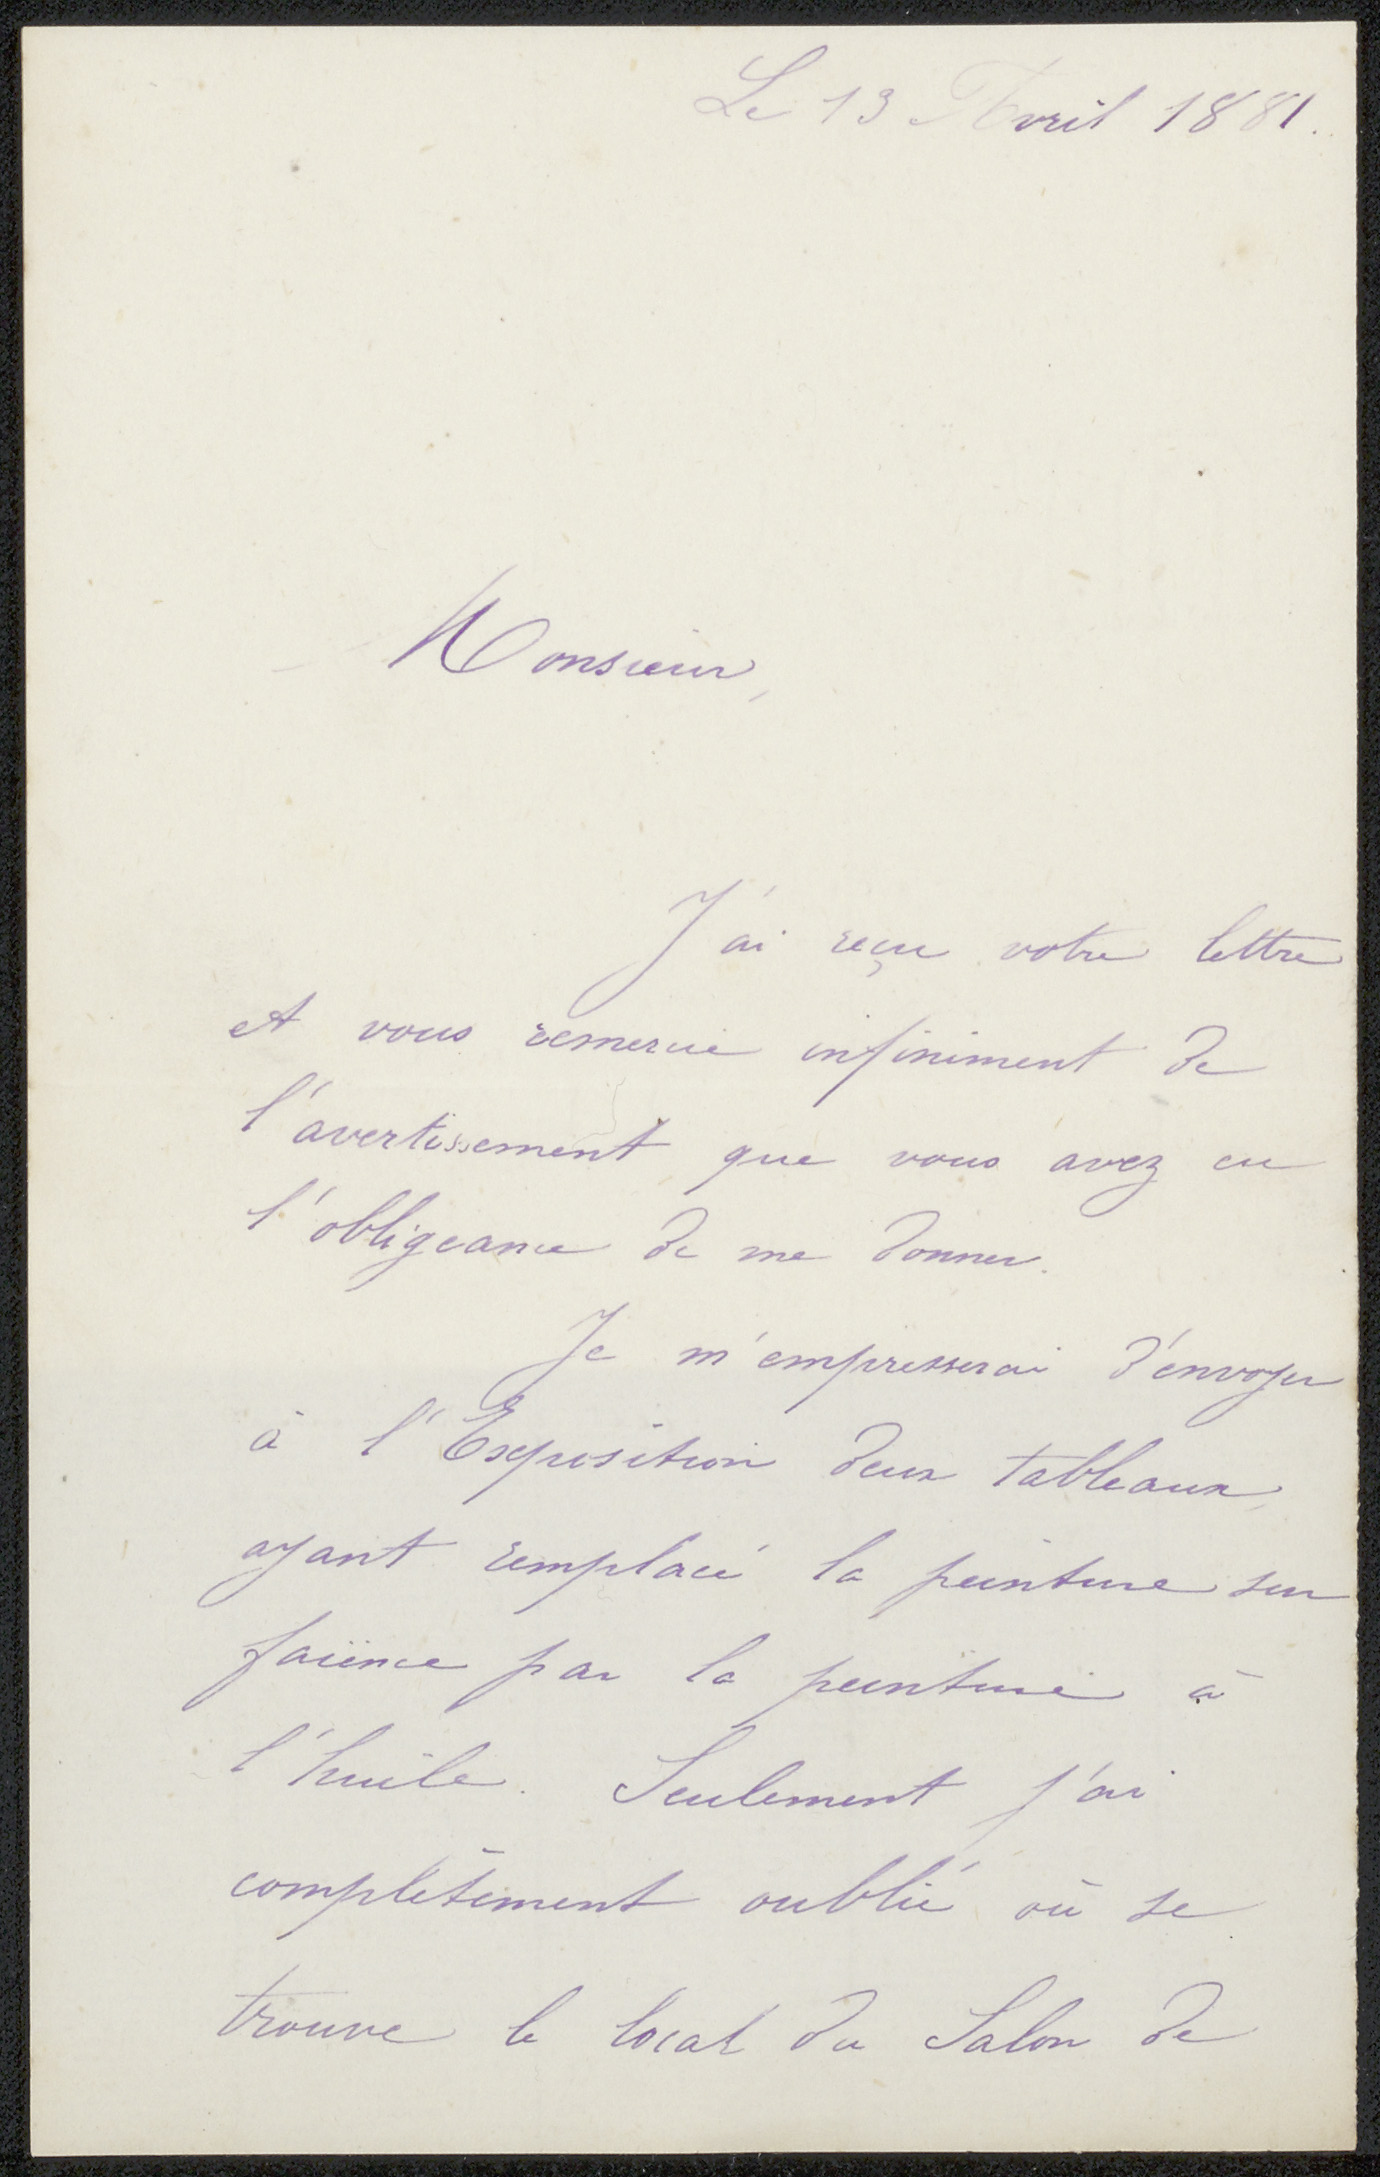 Le 13 Avril 1881.
Monsieur,
J'ai reçu votre lettre
et vous remercie infiniment de
l'avertissement que vous avez eu
l'obligeance de me donner.
Je m'empresserai d'envoyer
à l'Exposition deux tableaux,
ayant remplacé la peinture sur
faïence par la peinture à
l'huile. Seulement j'ai
complètement oublié où se
trouve le local du Salon de